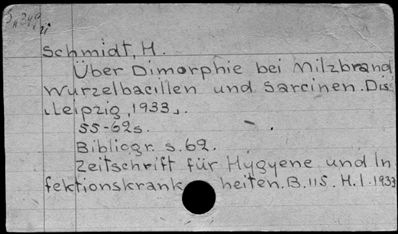 Schmidt, H.
Über Dimorphie bei Milzbrand
Wurzelbacillen und Sarcinen. Dis
Leipzig, 1933.
55-62s.
Bibliogr. s. 62.
Zeitschrift für Hygyene und In
fektionskrank heiten. B. 115. H. 1. 1933